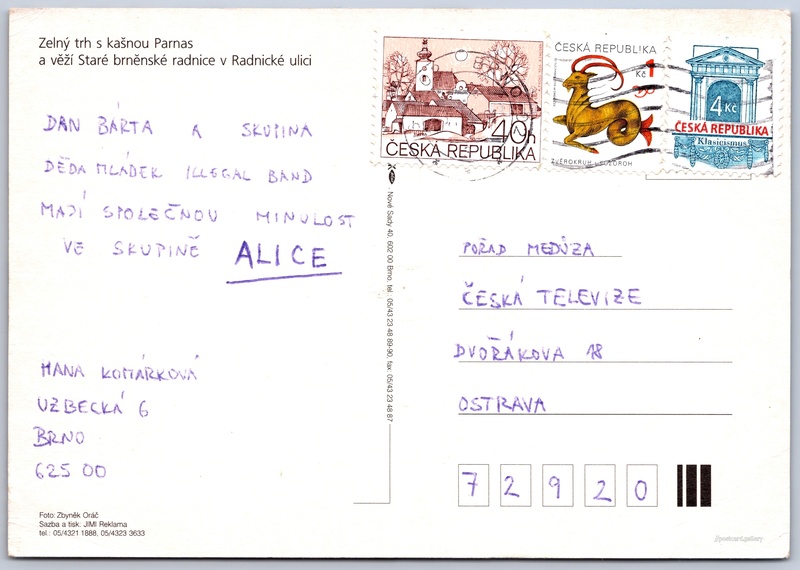 Zelný trh s kašnou Parnas
a věží Staré brněnské radnice v Radnické ulici
DAN BÁRTA A SKUPINA
DĚDA MLÁDEK ILLEGAL BAND
MAJÍ SPOLEČNOU MINULOST
VE SKUPINĚ ALICE
HANA KOMÁRKOVÁ
UZBECKÁ 6
BRNO
625 00
Foto: Zbyněk Oráč
Sazba a tisk: JIMI Reklama
tel.: 05/4321 1888, 05/4323 3633
Nové Sady 40, 602 00 Brno, tel. 05/43 23 48 89-90, fax. 05/43 23 48 87
40h
ČESKÁ REPUBLIKA
ČESKÁ REPUBLIKA
1
Kč
ZVĚROKRUH - KOZOROH
4 Kč
ČESKÁ REPUBLIKA
Klasicismus
POŘAD MEDÚZA
ČESKÁ TELEVIZE
DVOŘÁKOVA 18
OSTRAVA
7 2 9 2 0
//postcard.gallery